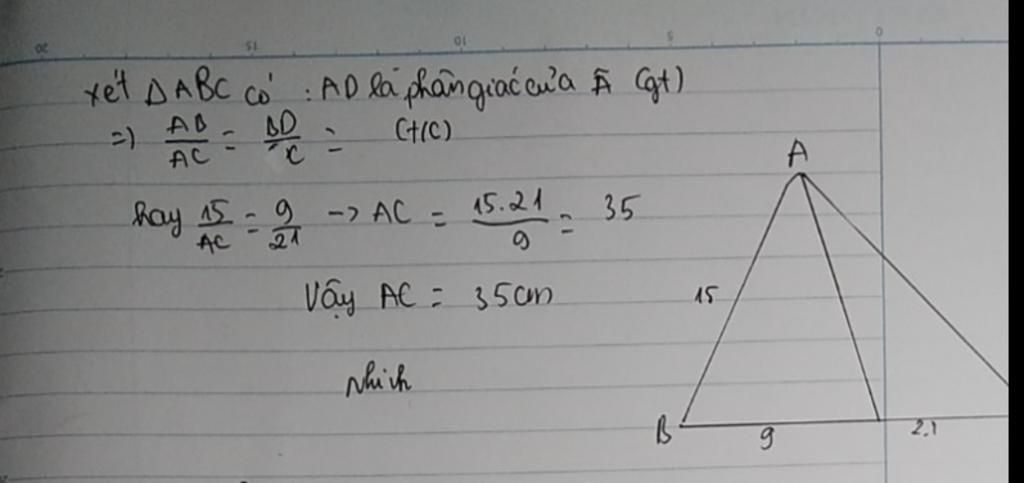 xét ΔABC có : AD là phân giác của Â (gt)
=> AB/AC = BD/C = (t/c)
hay 15/AC = 9/21 -> AC = 15.21/9 = 35
Vậy AC = 35cm
Nhich
A
15
B
9
2.1
20 15 10 5 0